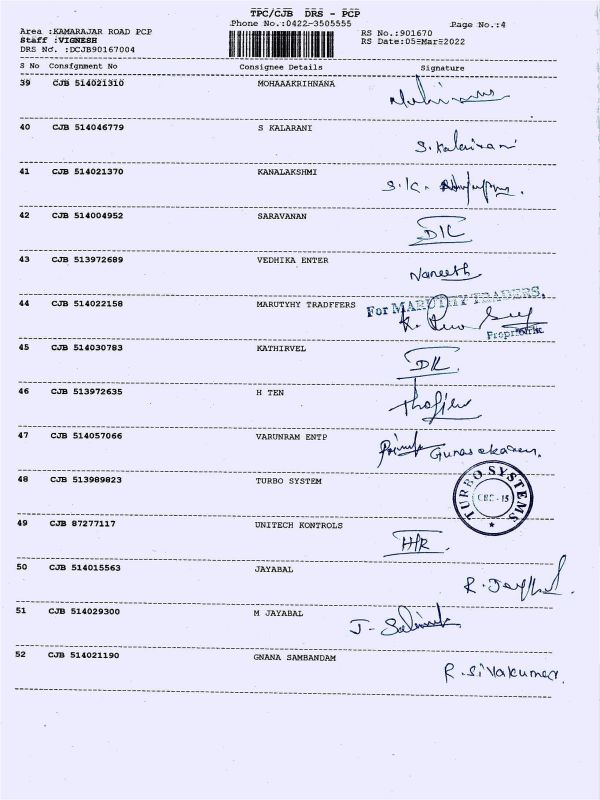 TPC/CJB DRS - PCP
Phone No.:0422-3505555
Page No.:4
Area :KAMARAJAR ROAD PCP
Staff :VIGNESH
DRS No. :DCJB90167004
RS No.:901670
RS Date:05-Mar-2022
S No Consignment No Consignee Details Signature
39 CJB 514021310 MOHAAAKRIHNANA
40 CJB 514046779 S KALARANI
S. Kalairani
41 CJB 514021370 KANALAKSHMI
S.K.
42 CJB 514004952 SARAVANAN
43 CJB 513972689 VEDHIKA ENTER
Naneeth
44 CJB 514022158 MARUTYHY TRADFFERS
For MARUTHY TRADERS,
Proprietor
45 CJB 514030783 KATHIRVEL
46 CJB 513972635 H TEN
47 CJB 514057066 VARUNRAM ENTP
Gunasekaran.
48 CJB 513989823 TURBO SYSTEM
TURBO SYSTEMS
CBE-15
49 CJB 87277117 UNITECH KONTROLS
50 CJB 514015563 JAYABAL
51 CJB 514029300 M JAYABAL
52 CJB 514021190 GNANA SAMBANDAM
R. Sivakumar.